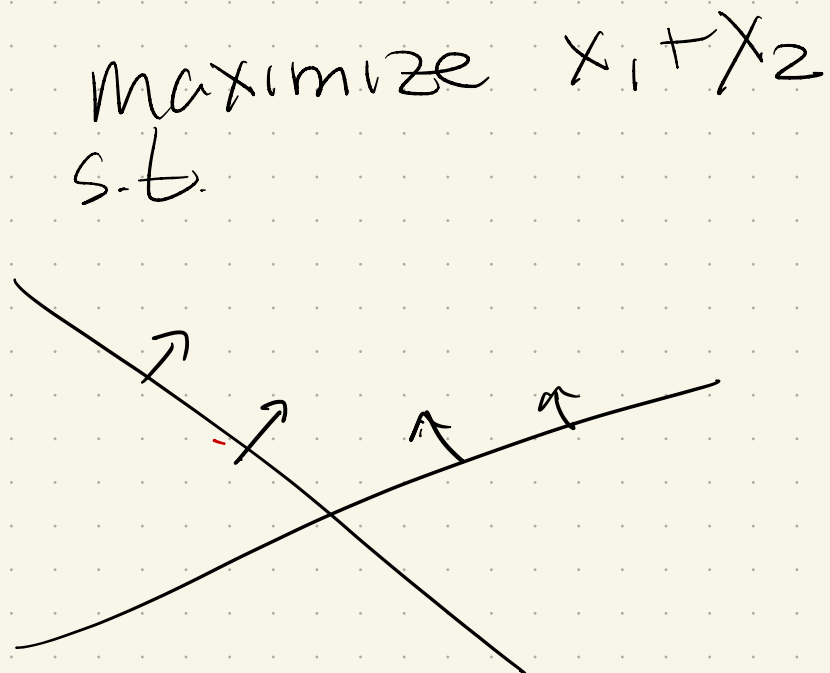 maximize x₁+x₂
s.t.